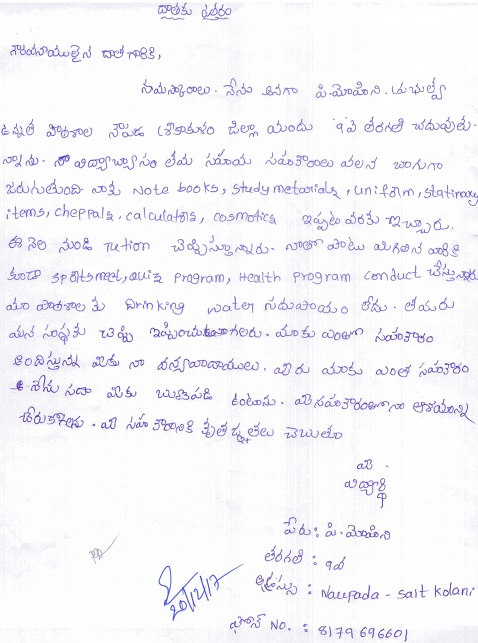 దాతకు ఉత్తరం
గౌరవనీయులైన దాతగారికి,
నమస్కారాలు. నేను అనగా పి.మోహిని. ప్రభుత్వ
ఉన్నత పాఠశాల నౌపడ శ్రీకాకుళం జిల్లా యందు 9వ తరగతి చదువుతు-
న్నాను. నా విద్యాభ్యాసం తమ సహాయ సహకారాలు వలన బాగుగా
జరుగుతుంది నాకు Note books, study meterials, uniform, stationary
items, cheppals, calculators, cosmotics ఇప్పటి వరకు ఇచ్చారు.
ఈ నెల నుండి Tution చెప్పిస్తున్నారు. నాతో పాటు మిగిలిన వారికి
కూడా sportsmeet, quiz program, Health program conduct చేస్తున్నారు
మా పాఠశాలకు Drinking water సదుపాయం లేదు. తమరు
మన సంస్థకు చెప్పి ఇప్పించగలరు. మాకు ఎంతగా సహకారం
అందిస్తున్న మీకు నా ధన్యవాదాయులు. మీరు మాకు ఎంత సహకారం
నేను సదా మీకు ఋణపడి ఉంటాను. మీ సహకారంతో నా ఆశయాన్ని
చేరుకొంటాను. మీ సహకారానికి కృతజ్ఞతలు చెబుతూ
మీ
విద్యార్థి
పేరు: పి.మోహిని
తరగతి : 9వ
అడ్రస్సు : Naupada - salt kolani
ఫోన్ NO. : 8179696601
20/12/17